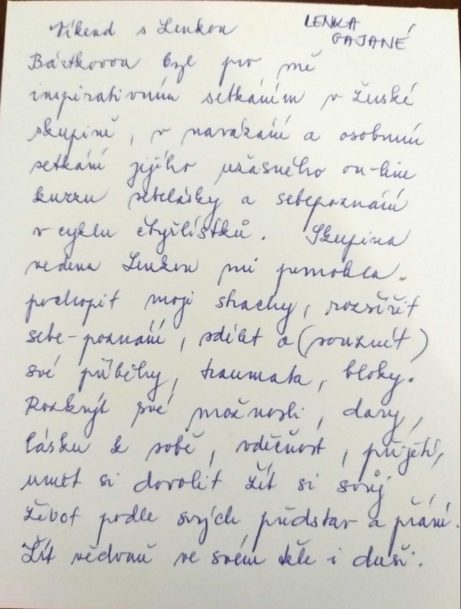 LENKA
GAJANÉ
Víkend s Lenkou
Bártkovou byl pro mě
inspirativním setkáním v ženské
skupině, v navázání a osobním
setkání jejího úžasného on-line
kurzu sebelásky a sebepoznání
v cyklu čtyřlístků. Skupina
vedena Lenkou mi pomohla
pochopit moji strachy, rozšířit
sebe-poznání, sdílet a (souznít)
své příběhy, traumata, bloky.
Rozkrýt své možnosti, dary,
lásku k sobě, vděčnost, přijetí,
umět si dovolit žít si svůj
život podle svých představ a přání.
Žít vědomě ve svém těle i duši.